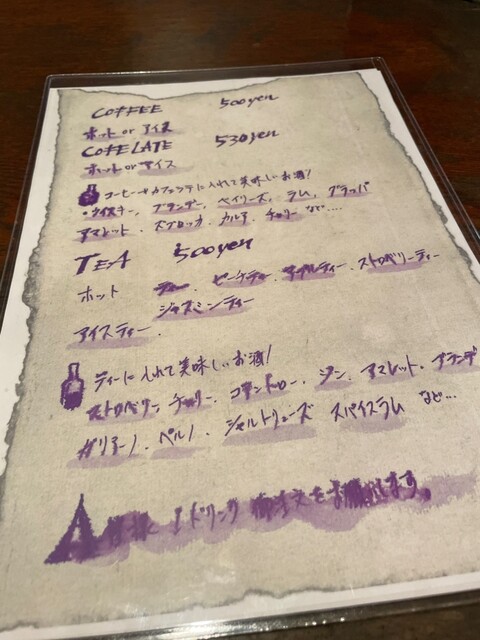 COFFEE 500yen
ホット or アイス
COFFE LATE 530yen
ホット or アイス
コーヒーやカフェラテに入れて美味しいお酒!
・ウイスキー、ブランデー、ベイリーズ、ラム、グラッパ
アマレット、ズブロッカ、カルーア、チェリー など....
TEA 500yen
ホット ティー、ピーチティー、アップルティー、ストロベリーティー
ジャスミンティー
アイスティー、
ティーに入れて美味しいお酒!
ストロベリー、チェリー、コアントロー、ジン、アマレット、ブランデ
ガリアーノ、ペルノ、シャルトリューズ スパイスラム など...
1ドリンク 御注文をお願いします。